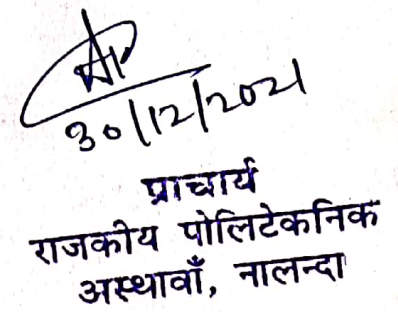 30/12/2021
प्राचार्य
राजकीय पोलिटेकनिक
अस्थावाँ, नालन्दा